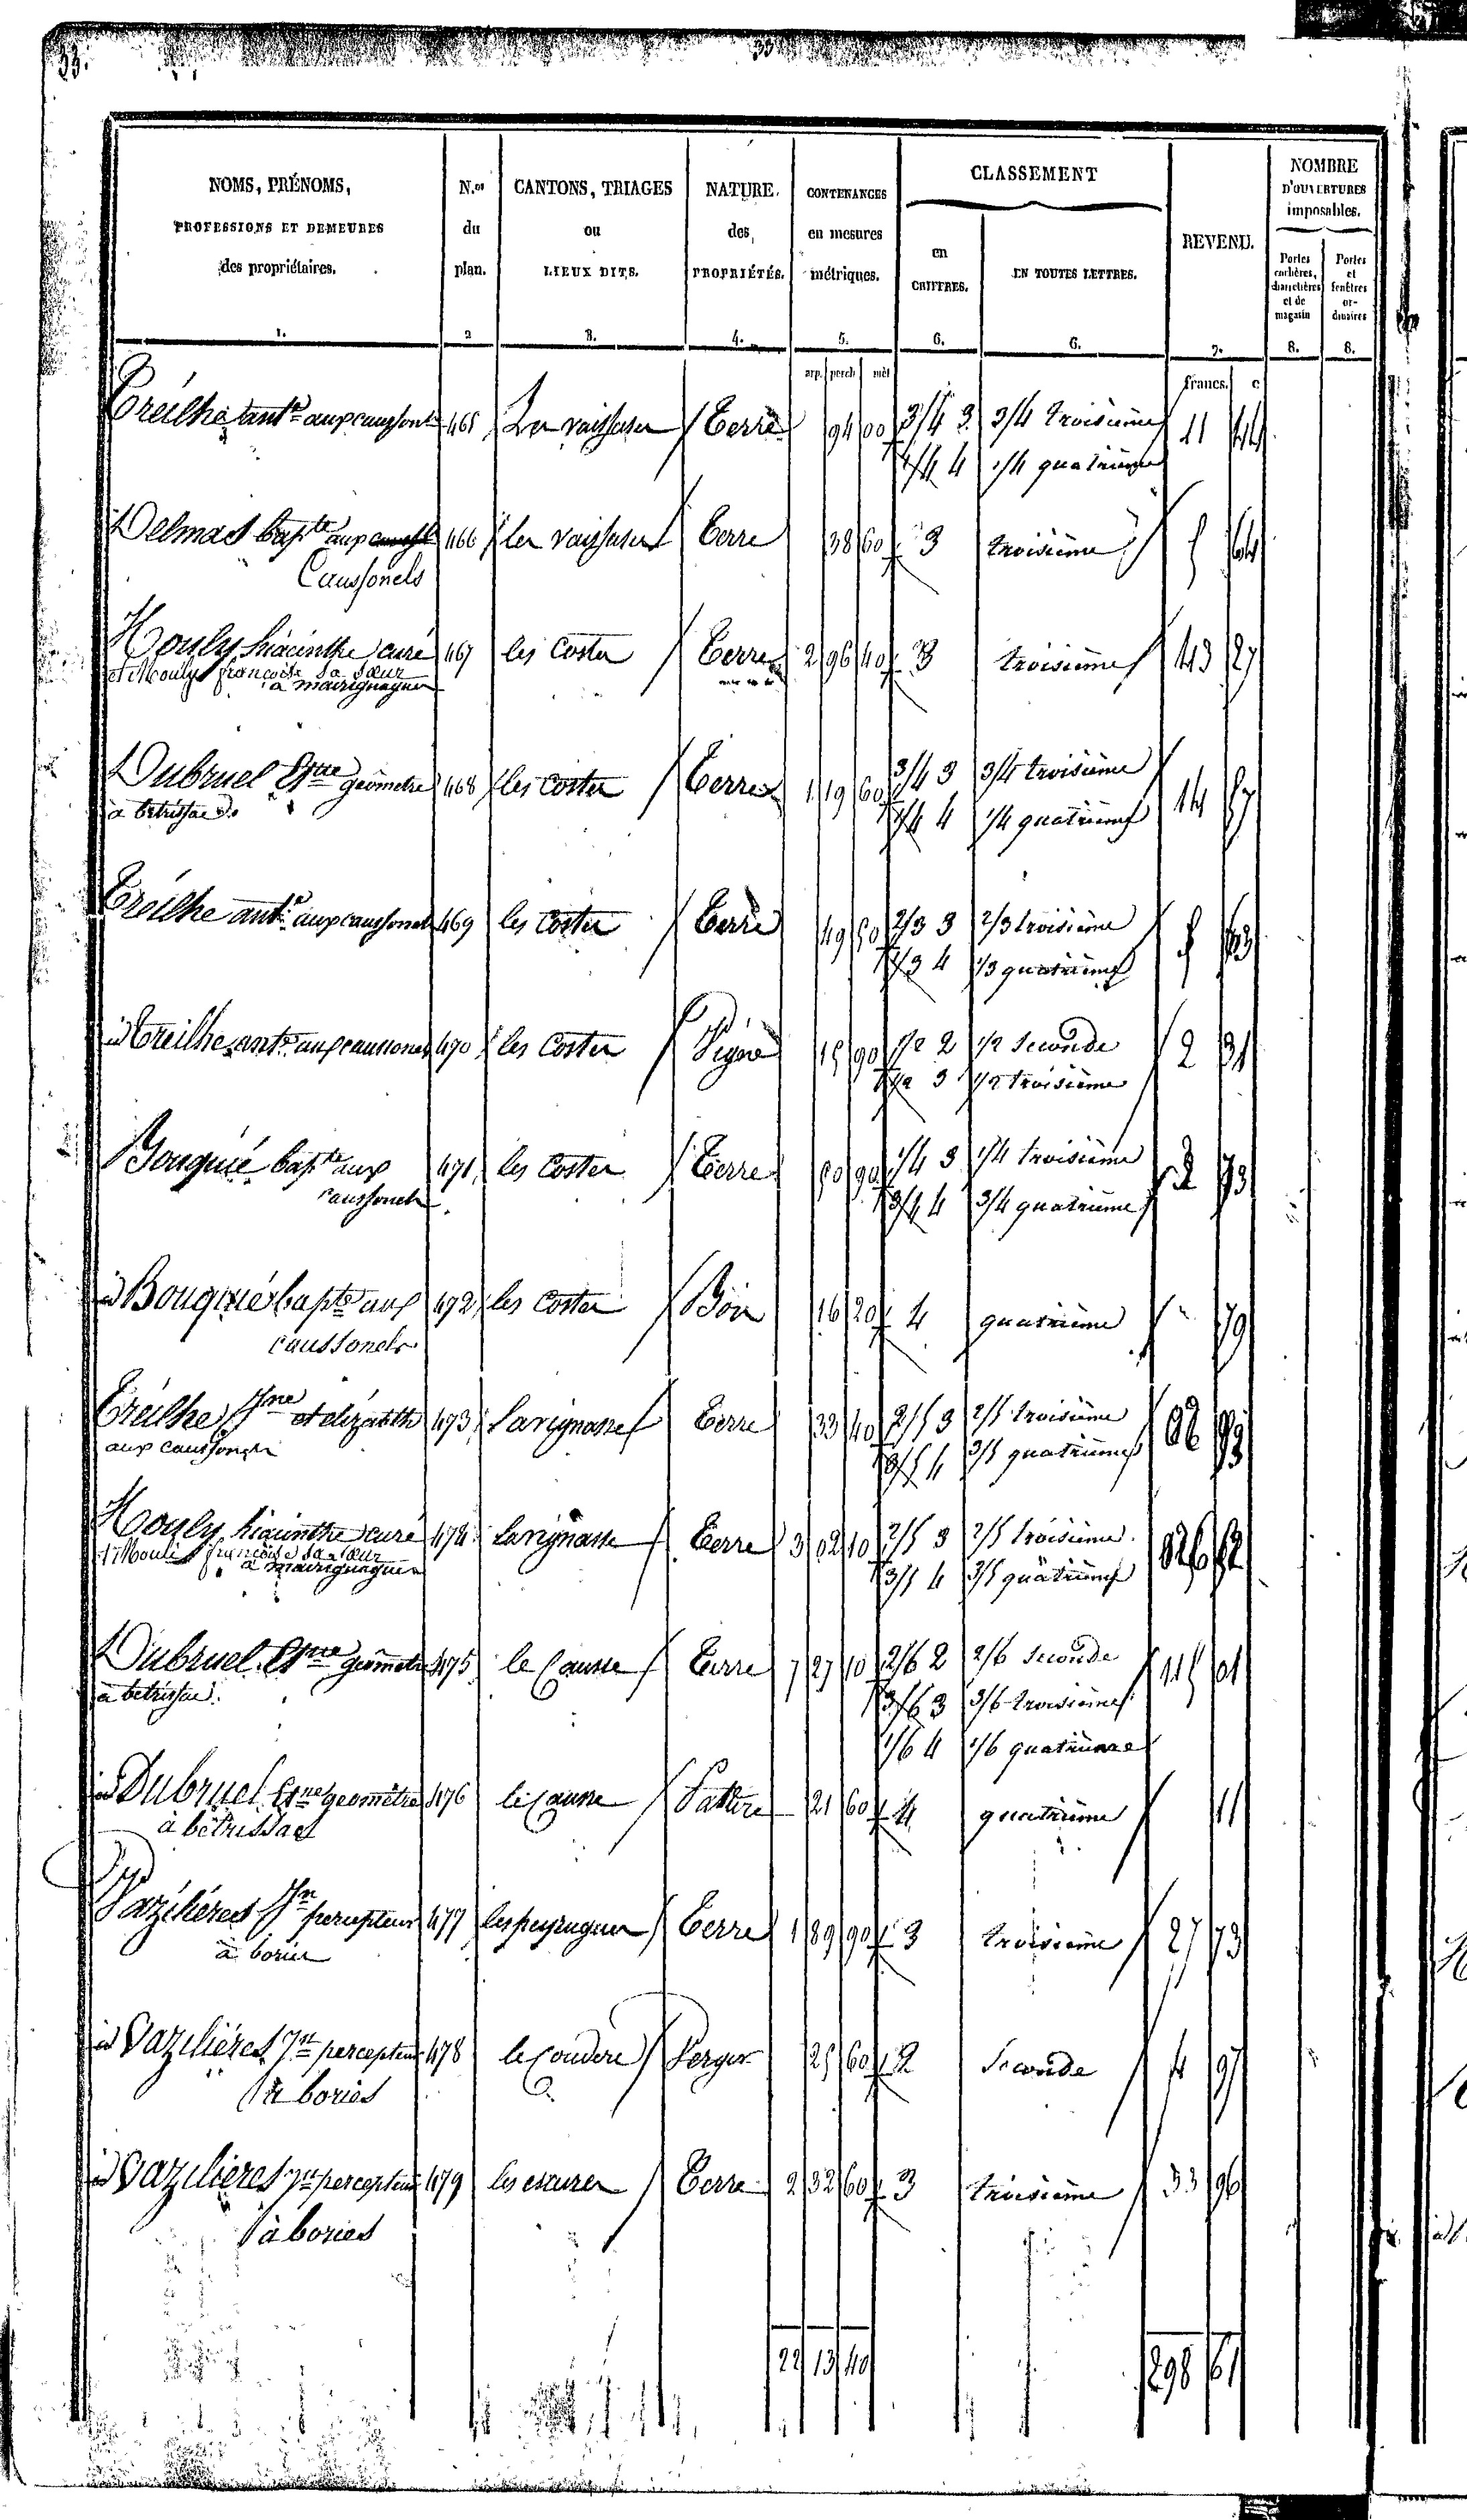 33.
33
NOMS, PRÉNOMS,
PROFESSIONS ET DEMEURES
des propriétaires.
1.
N.os
du
plan.
2
CANTONS, TRIAGES
ou
LIEUX DITS.
3.
NATURE.
des
PROPRIÉTÉS.
4.
CONTENANCES
en mesures
métriques.
5.
CLASSEMENT
en
CHIFFRES.
6.
EN TOUTES LETTRES.
6.
REVENU.
7.
NOMBRE
D'OUVERTURES
imposables.
Portes
cochères,
charretières
et de
magasin
8.
Portes
et
fenêtres
or-
dinaires
8.
arp. perch mèt
francs. c
Treilhe ant.e aux caussonels 465 Terre 94 00 3/4 3 3/4 troisième 11 44
1/4 4 1/4 quatrième
Delmas bap.te aux 466 Terre 38 60 3 troisième 5 64
Caussonels
Mouly hiacinthe curé 467 les Costes Terre 2 96 40 3 troisième 43 27
et Mouly francoise sa sœur
à
Dubruel géomètre 468 les Costes Terre 1 19 60 3/4 3 3/4 troisième 14 57
à betrissac 1/4 4 1/4 quatrième
Treilhe ant.e aux caussonels 469 les Costes Terre 49 50 2/3 3 2/3 troisième 5 63
1/3 4 1/3 quatrième
id Treilhe ant.e aux caussonels 470 les Costes Vigne 15 90 1/2 2 1/2 seconde 2 31
1/2 3 1/2 troisième
Bouquié bap.te aux 471 les Costes Terre 50 90 1/4 3 1/4 troisième 2 73
caussonels 3/4 4 3/4 quatrième
id Bouquié bap.te aux 472 les Costes Bois 16 20 4 quatrième 79
caussonels
Treilhe et elizabeth 473 Lavignasse Terre 33 40 2/5 3 2/5 troisième 93
aux caussonels 3/5 4 3/5 quatrième
Mouly hiacinthe curé 474 Lavignasse Terre 3 02 10 2/5 3 2/5 troisième 26 52
et Mouli francoise sa sœur 3/5 4 3/5 quatrième
à
Dubruel géomètre 475 le Causse Terre 7 27 10 2/6 2 2/6 seconde 115 01
à betrissac. 3/6 3 3/6 troisième
1/6 4 1/6 quatrième
id Dubruel géomètre 476 le Causse Pature 21 60 4 quatrième 11
à betrissac
Vazilières percepteur 477 Terre 1 89 90 3 troisième 27 73
à bories
id Vazilières percepteur 478 le Couderc Verger 25 60 2 Seconde 4 97
à bories
id Vazilières percepteur 479 les Terre 2 32 60 3 troisième 33 96
à bories
22 13 40 298 61